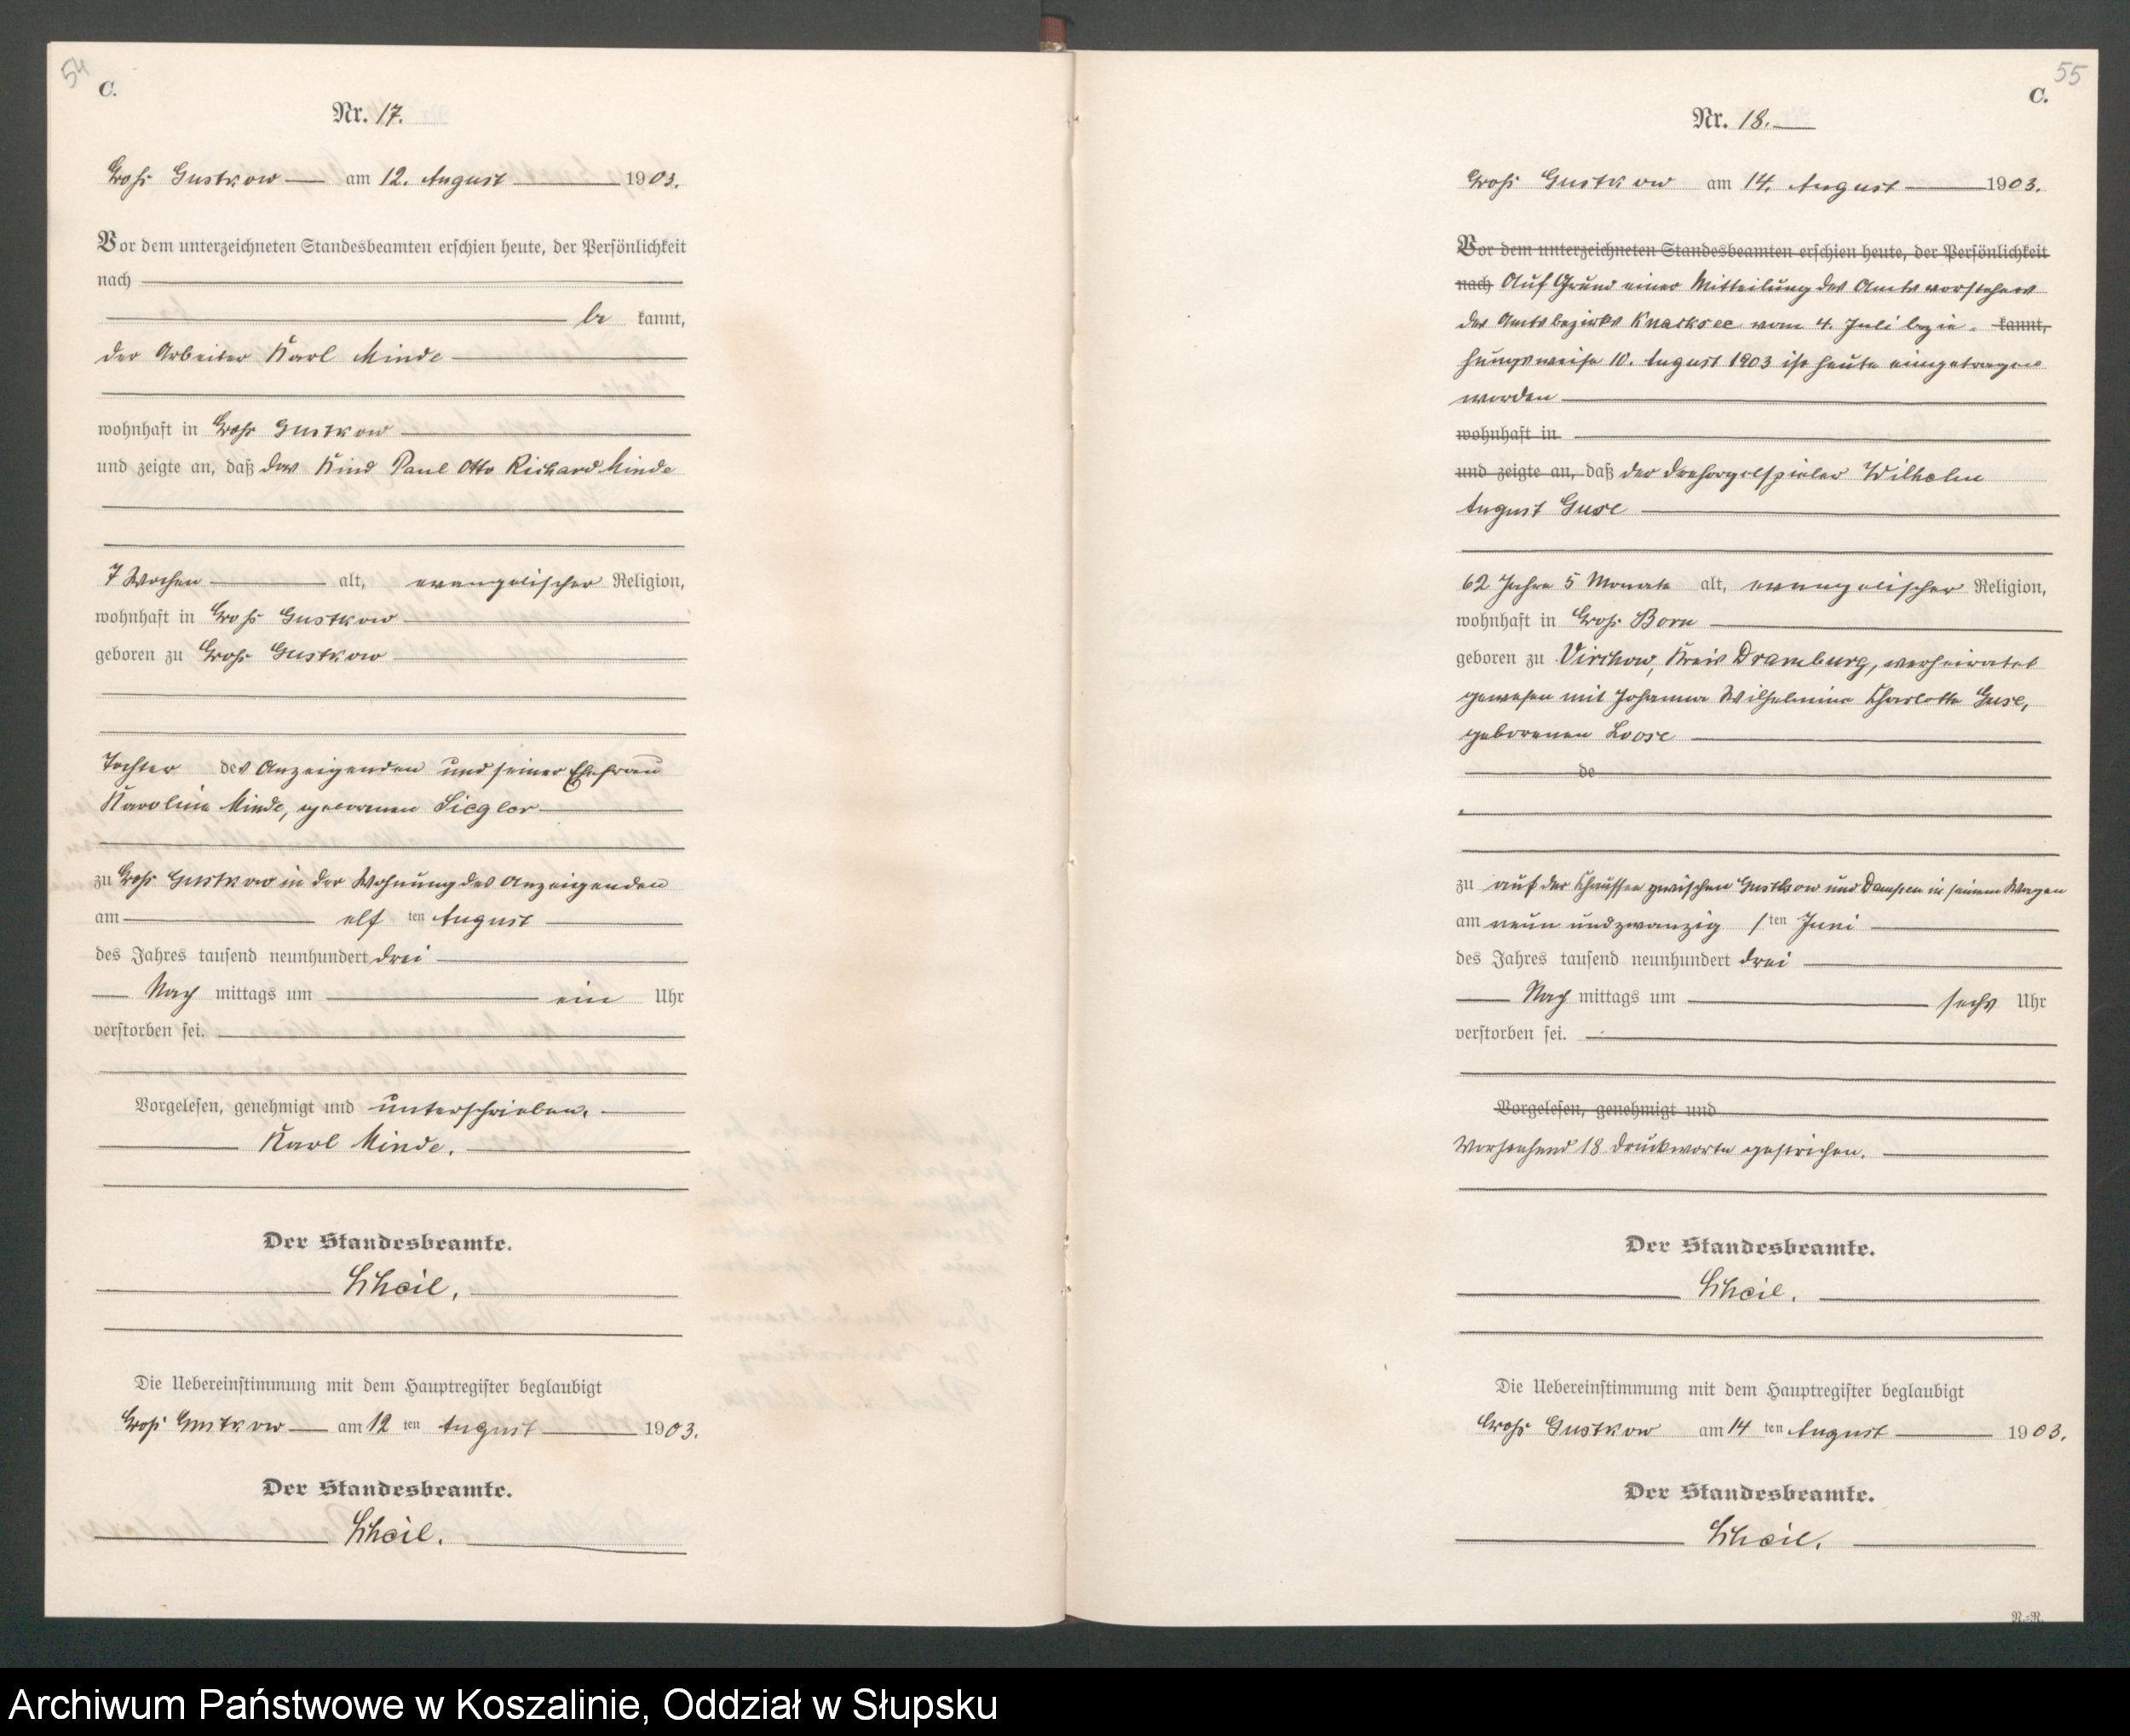 54
C.
Nr. 17.
Groß Gustkow am 12. August 1903.
Vor dem unterzeichneten Standesbeamten erschien heute, der Persönlichkeit
nach
be kannt,
der Arbeiter Karl Minde
wohnhaft in Groß Gustkow
und zeigte an, daß das Kind Paul Otto Richard Minde
7 Wochen alt, evangelischer Religion,
wohnhaft in Groß Gustkow
geboren zu Groß Gustkow
Tochter des Anzeigenden und seiner Ehefrau
Karoline Minde, geborenen Siegler
zu Groß Gustkow in der Wohnung des Anzeigenden
am elf ten August
des Jahres tausend neunhundert drei
Nach mittags um ein Uhr
verstorben sei.
Vorgelesen, genehmigt und unterschrieben.
Karl Minde.
Der Standesbeamte.
Scheil.
Die Uebereinstimmung mit dem Hauptregister beglaubigt
Groß Gustkow am 12 ten August 1903.
Der Standesbeamte.
Scheil.
55
C.
Nr. 18.
Groß Gustkow am 14. August 1903.
Vor dem unterzeichneten Standesbeamten erschien heute, der Persönlichkeit
nach Auf Grund einer Mitteilung des Amtsvorstehers
des Amtsbezirks vom 4. Juli bezie- kannt,
hungsweise 10. August 1903 ist heute eingetragen
worden
wohnhaft in
und zeigte an, daß der Drehorgelspieler Wilhelm
August Guse
62 Jahre 5 Monate alt, evangelischer Religion,
wohnhaft in Groß Born
geboren zu Virchow, Kreis Dramburg, verheiratet
gewesen mit Johanna Wilhelmine Charlotte Guse,
geborenen Loose
de
zu auf der Chaussee zwischen Gustkow und in seinem Wagen
am neun und zwanzig ten Juni
des Jahres tausend neunhundert drei
Nach mittags um sechs Uhr
verstorben sei.
Vorgelesen, genehmigt und
Vorstehend 18 Druckworte gestrichen.
Der Standesbeamte.
Scheil.
Die Uebereinstimmung mit dem Hauptregister beglaubigt
Groß Gustkow am 14 ten August 1903.
Der Standesbeamte.
Scheil.
R.-R.
Archiwum Państwowe w Koszalinie, Oddział w Słupsku